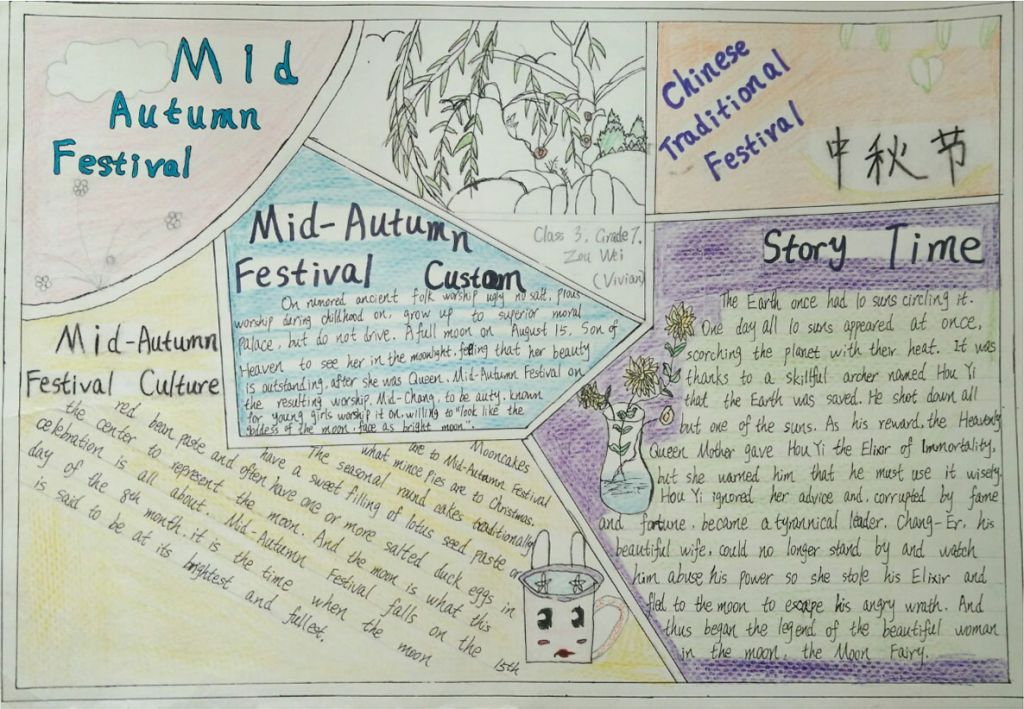 Mid
Autumn
Festival
Chinese
Traditional
Festival
中秋节
Class 3, Grade 7.
Zou Wei
(Vivian)
Mid-Autumn
Festival Custom
On rumored ancient folk worship ugly no salt, pious
worship during childhood on, grow up to superior moral
palace, but do not drive. A full moon on August 15, Son of
Heaven to see her in the moonlight, feeling that her beauty
is outstanding, after she was Queen. Mid-Autumn Festival on
the resulting worship. Mid-Chang, to be auty, known
for young girls worship it on, willing to "look like the
goddess of the moon, face as bright moon".
Mid-Autumn
Festival Culture
Mooncakes
are to Mid-Autumn Festival
what mince pies are to Christmas.
The seasonal round cakes traditionally
have a sweet filling of lotus seed paste or
red bean paste and often have one or more salted duck eggs in
the center to represent the moon. And the moon is what this
celebration is all about. Mid-Autumn Festival falls on the 15th
day of the 8th month, it is the time when the moon
is said to be at its brightest and fullest.
Story Time
The Earth once had 10 suns circling it.
One day all 10 suns appeared at once,
scorching the planet with their heat. It was
thanks to a skillful archer named Hou Yi
that the Earth was saved. He shot down all
but one of the suns. As his reward, the Heavenly
Queen Mother gave Hou Yi the Elixir of Immortality,
but she warned him that he must use it wisely.
Hou Yi ignored her advice and, corrupted by fame
and fortune, became a tyrannical leader. Chang-Er, his
beautiful wife, could no longer stand by and watch
him abuse his power so she stole his Elixir and
fled to the moon to escape his angry wrath. And
thus began the legend of the beautiful woman
in the moon, the Moon Fairy.